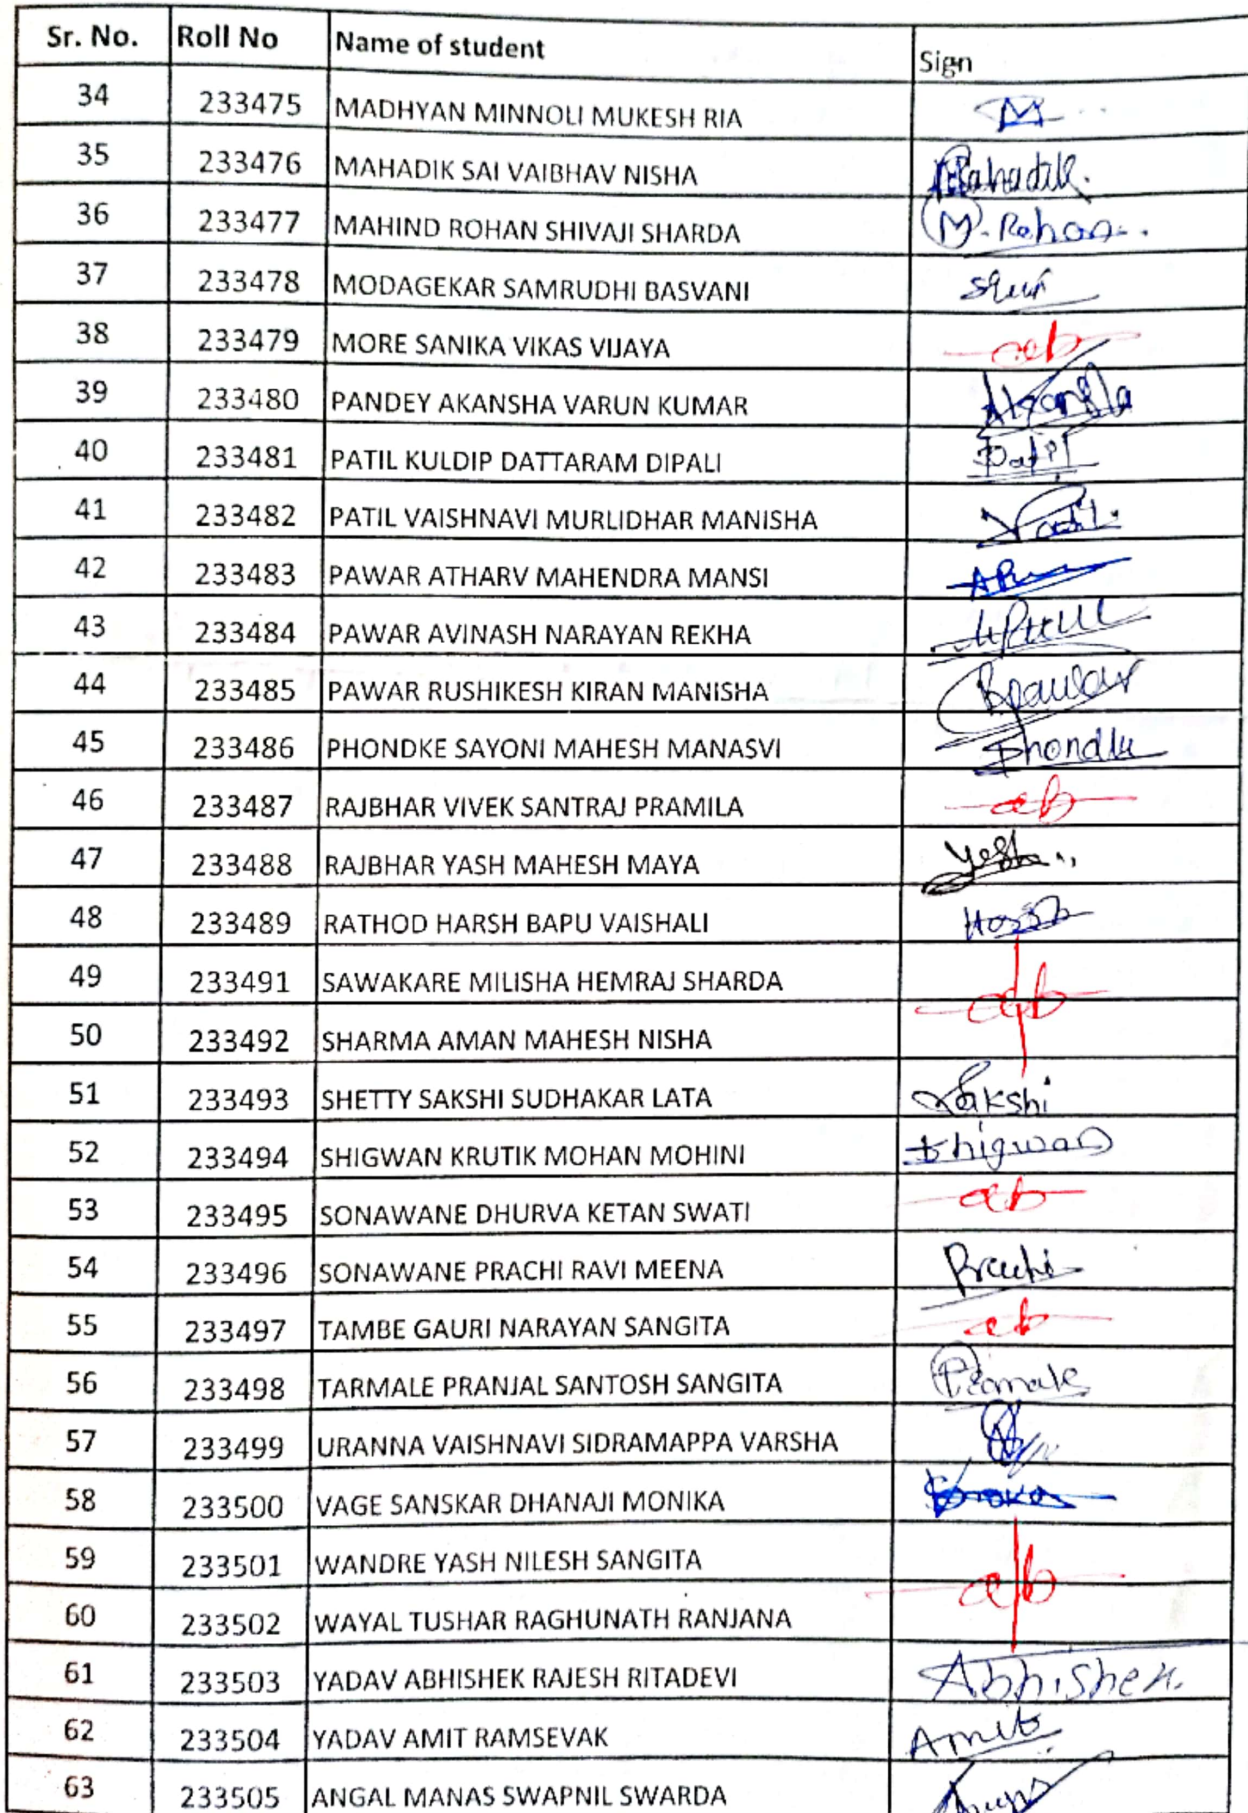 Sr. No. Roll No Name of student Sign
34 233475 MADHYAN MINNOLI MUKESH RIA M
35 233476 MAHADIK SAI VAIBHAV NISHA Mahadik.
36 233477 MAHIND ROHAN SHIVAJI SHARDA M. Rohan
37 233478 MODAGEKAR SAMRUDHI BASVANI
38 233479 MORE SANIKA VIKAS VIJAYA ab
39 233480 PANDEY AKANSHA VARUN KUMAR
40 233481 PATIL KULDIP DATTARAM DIPALI Patil
41 233482 PATIL VAISHNAVI MURLIDHAR MANISHA
42 233483 PAWAR ATHARV MAHENDRA MANSI
43 233484 PAWAR AVINASH NARAYAN REKHA
44 233485 PAWAR RUSHIKESH KIRAN MANISHA Rpawar
45 233486 PHONDKE SAYONI MAHESH MANASVI
46 233487 RAJBHAR VIVEK SANTRAJ PRAMILA ab
47 233488 RAJBHAR YASH MAHESH MAYA Yash
48 233489 RATHOD HARSH BAPU VAISHALI
49 233491 SAWAKARE MILISHA HEMRAJ SHARDA ab
50 233492 SHARMA AMAN MAHESH NISHA
51 233493 SHETTY SAKSHI SUDHAKAR LATA Sakshi
52 233494 SHIGWAN KRUTIK MOHAN MOHINI Shigwan
53 233495 SONAWANE DHURVA KETAN SWATI ab
54 233496 SONAWANE PRACHI RAVI MEENA Prachi
55 233497 TAMBE GAURI NARAYAN SANGITA ab
56 233498 TARMALE PRANJAL SANTOSH SANGITA
57 233499 URANNA VAISHNAVI SIDRAMAPPA VARSHA
58 233500 VAGE SANSKAR DHANAJI MONIKA
59 233501 WANDRE YASH NILESH SANGITA ab
60 233502 WAYAL TUSHAR RAGHUNATH RANJANA
61 233503 YADAV ABHISHEK RAJESH RITADEVI Abhishek.
62 233504 YADAV AMIT RAMSEVAK Amit
63 233505 ANGAL MANAS SWAPNIL SWARDA